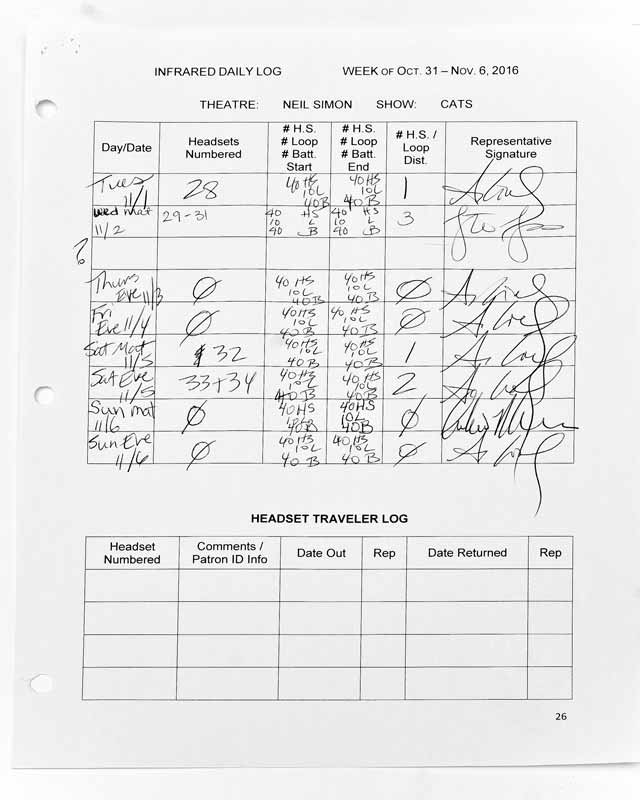 INFRARED DAILY LOG WEEK OF OCT. 31 – NOV. 6, 2016
THEATRE: NEIL SIMON SHOW: CATS
Day/Date Headsets Numbered # H.S. # Loop # Batt. Start # H.S. # Loop # Batt. End # H.S. / Loop Dist. Representative Signature
Tues 11/1 28 40 HS 10L 40B 40 HS 10L 40B 1
Wed mat 11/2 29-31 40 HS 10 L 40 B 40 HS 10 L 40 B 3
?
Thurs Eve 11/3 Ø 40 HS 10L 40B 40 HS 10L 40B Ø
Fri Eve 11/4 Ø 40HS 10L 40B 40HS 10L 40B Ø
Sat Mat 11/5 32 40HS 10L 40B 40HS 10L 40B 1
Sat Eve 11/5 33+34 40HS 10L 40B 40HS 10L 40B 2
Sun mat 11/6 Ø 40HS 10L 40B 40HS 10L 40B Ø
Sun Eve 11/6 Ø 40HS 10L 40B 40HS 10L 40B Ø
HEADSET TRAVELER LOG
Headset Numbered Comments / Patron ID Info Date Out Rep Date Returned Rep
26